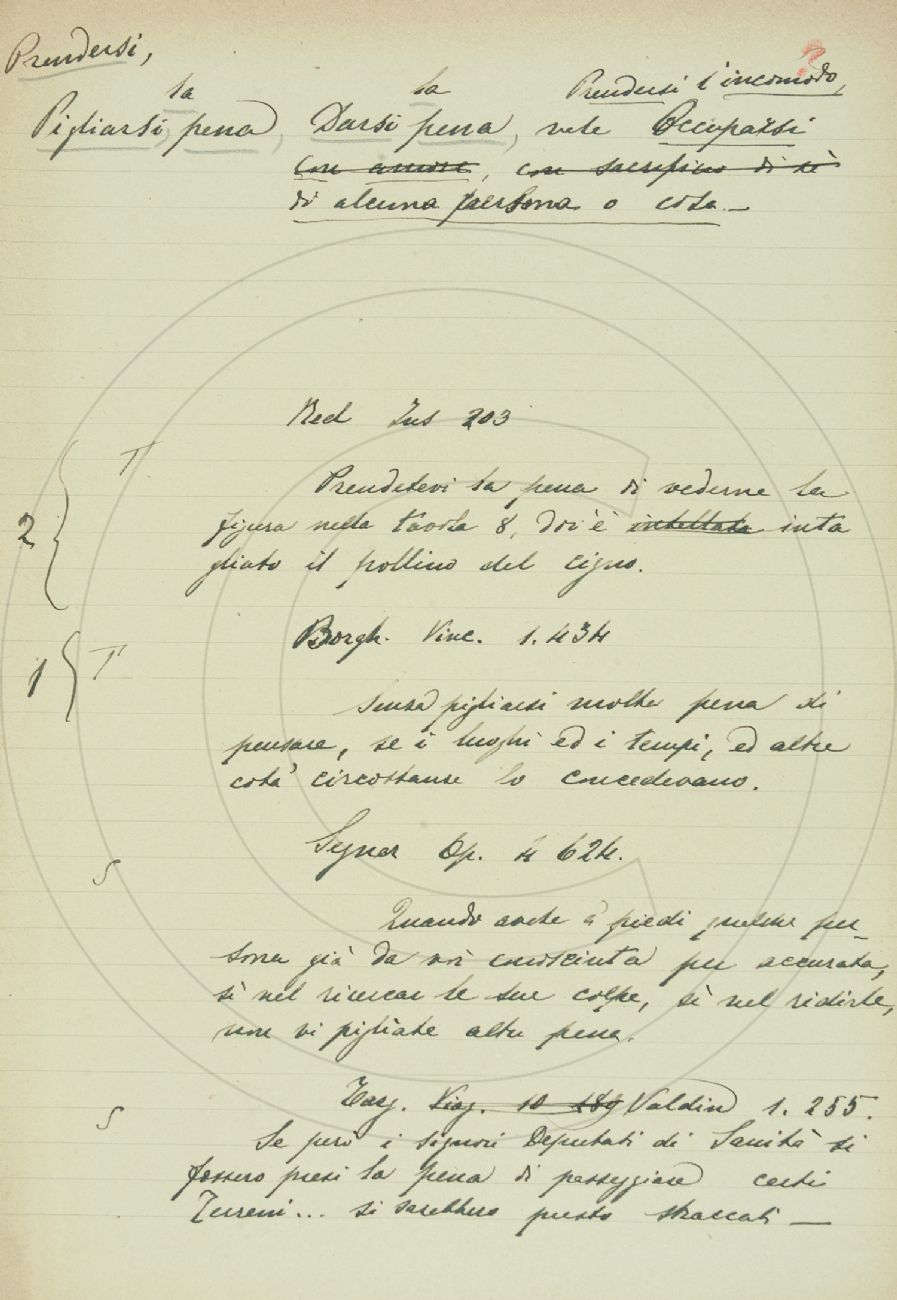 Prendersi,
la la Prendersi l'incomodo,
Pigliarsi pena, Darsi pena, vale Occuparsi
con amore, con sacrificio di sè
di alcuna persona o cosa —
Red Ins 203
T
Prendetevi la pena di vederne la
2 figura nella tavola 8, dov'è intellata inta
gliato il pollino del cigno.
Borgh. Vinc. 1. 434
1 T
Senza pigliarsi molta pena di
pensare, se i luoghi ed i tempi, ed altre
cotà circostanze lo concedevano.
Segner Op. 4 624.
S
Quando avete a' piedi qualche per-
sona già da voi conosciuta per accurata,
sì nel ricercar le sue colpe, sì nel ridirle,
non vi pigliate altra pena.
Targ. Viag. 10 189 Valdin 1. 255.
S
Se però i signori Deputati di Sanità si
fossero presi la pena di passeggiare certi
Terreni... si sarebbero presto straccati —